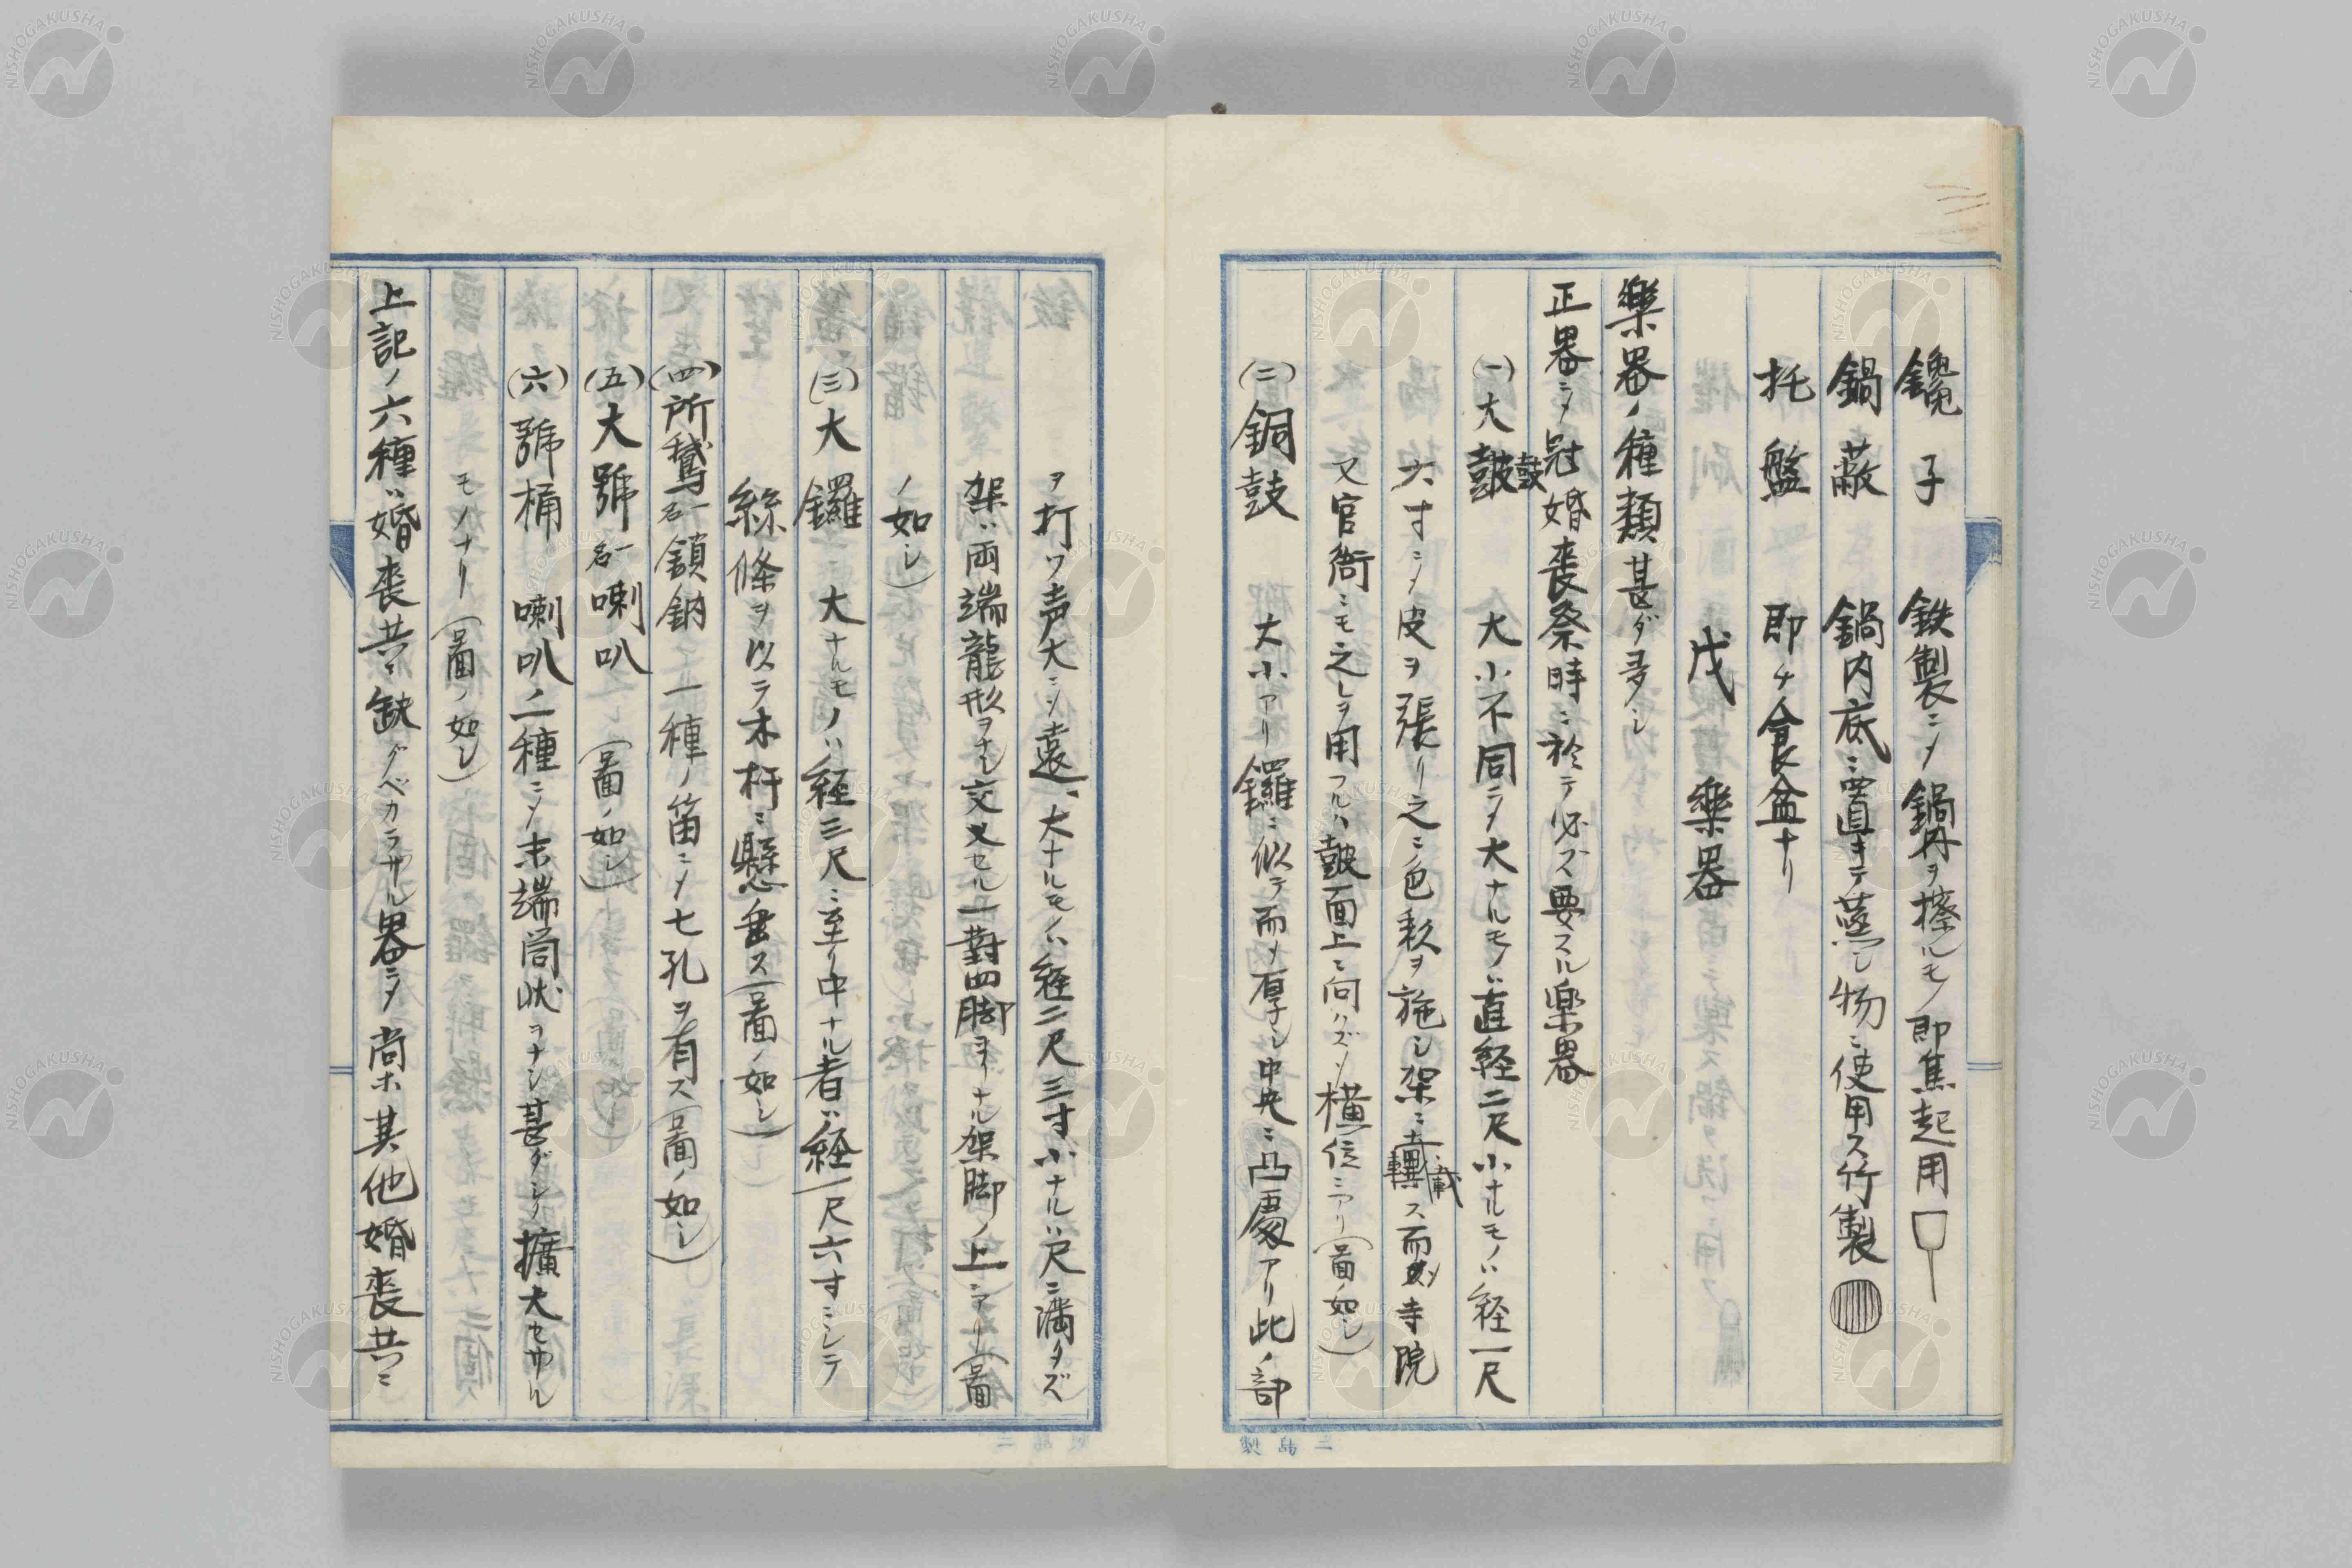 鑱子　鉄製ニメ鍋内ヲ擦ルモノ即焦起用
鍋蔽　鍋内底ニ置キテ蒸シ物ニ使用ス竹製
托盤　即チ食盆ナリ
戊　樂器
樂器ノ種類甚ダ多シ
正器ニメ冠婚喪祭時ニ於テ必ズ要スル楽器
(一)大皷鼓　大小不同ニメ大ナルモノハ直経二尺小ナルモノハ経一尺
六寸ニメ皮ヲ張リ之ニ色彩ヲ施シ架ニ載ス而メ寺院
又官衙ニモ之レヲ用フルハ皷面上ニ向ハズメ横位ニアリ(啚ノ如シ)
(二)銅鼓　大小アリ鑼ニ似テ而メ厚シ中央ニ凸處アリ此ノ部
ヲ打ツ声大ニメ遠、大ナルモノハ経二尺三寸小ナルハ尺ニ満タズ
架ハ両端龍形ヲナシ交叉セル一對四脚ヨリナル架脚ノ上ニアリ(啚
ノ如シ)
(三)大鑼　大ナルモノハ経三尺ニ至リ中ナル者ハ経一尺六寸ニシテ
絲條ヲ以テ木杆ニ懸垂ス(啚ノ如シ)
(四)所鵞一名鎖鈉　一種ノ笛ニメ七孔ヲ有ス(啚ノ如シ)
(五)大號一名喇叭　(啚ノ如シ)
(六)號桶　喇叭ノ一種ニメ末端筒状ヲナシ甚ダシク擴大セザル
モノナリ(啚ノ如シ)
上記ノ六種ハ婚喪共ニ缺クベカラザル器ニメ尚ホ其他婚喪共ニ
NISHOGAKUSHA